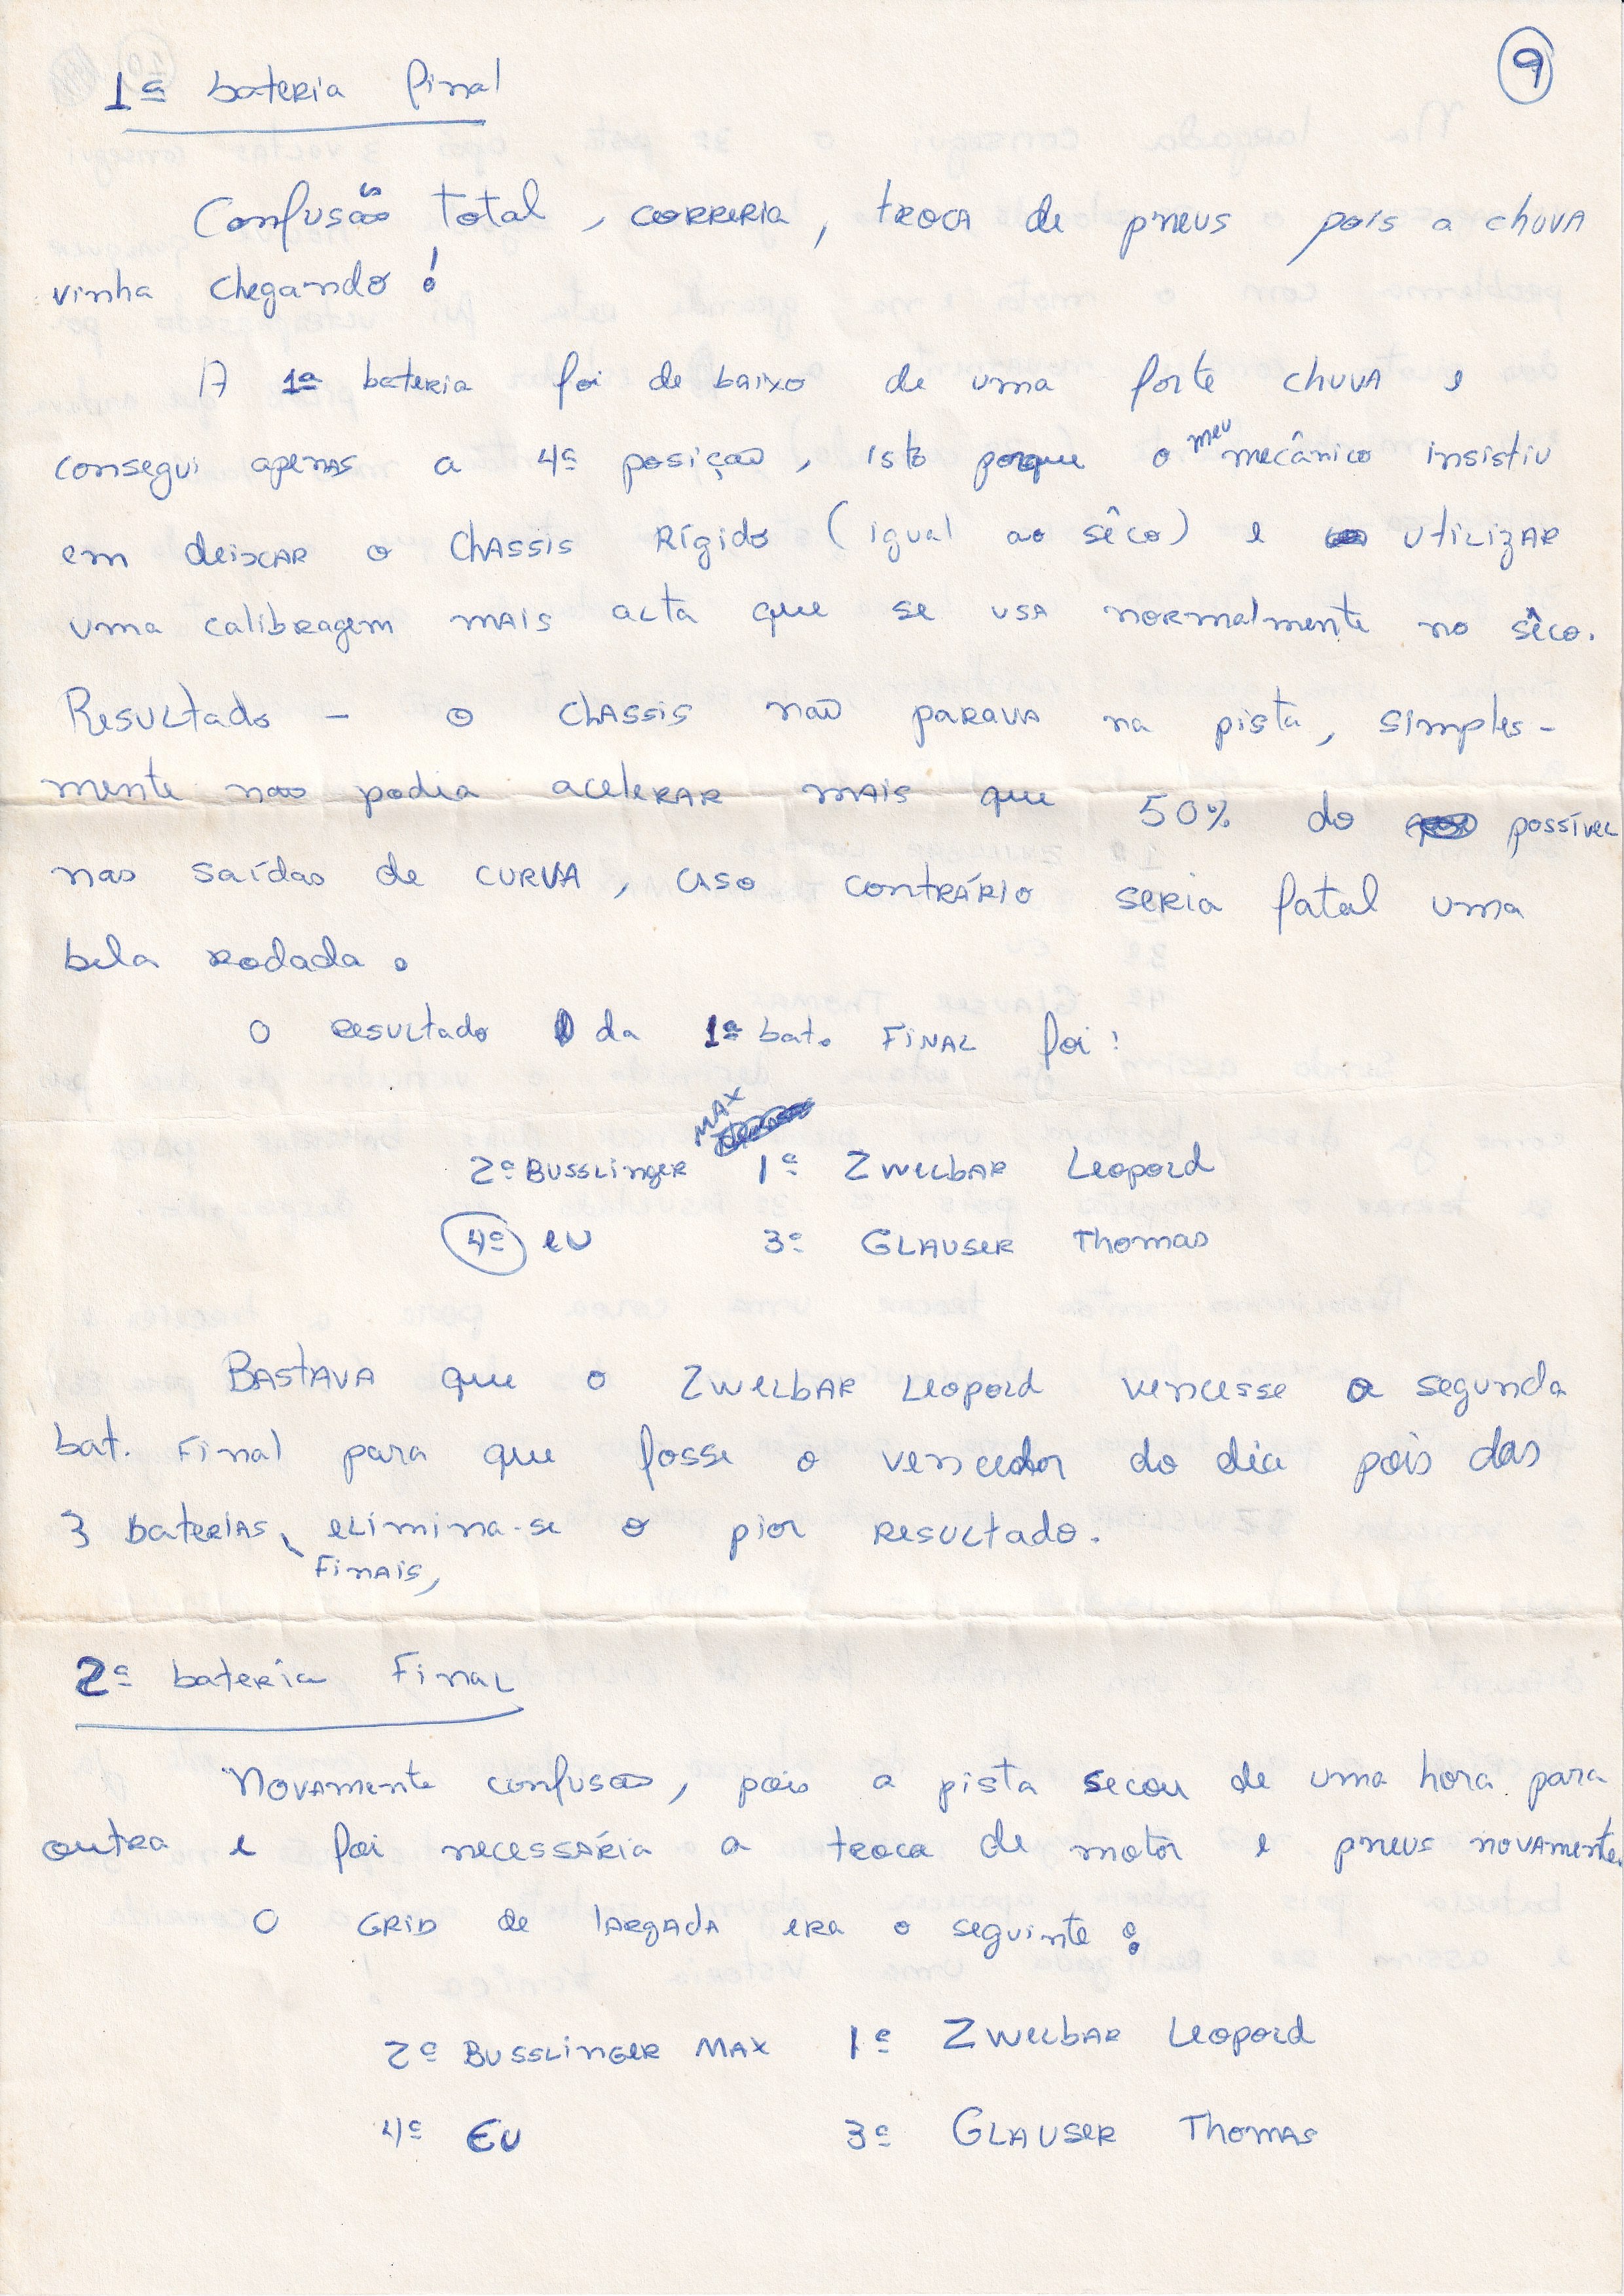 9
1ª bateria final
Confusão total, correria, troca de pneus pois a chuva
vinha chegando!
A 1ª bateria foi de baixo de uma forte chuva e
consegui apenas a 4ª posição, isto porque o meu mecânico insistiu
em deixar o chassis rígido (igual ao sêco) e utilizar
uma calibragem mais alta que se usa normalmente no sêco.
Resultado - o chassis não parava na pista, simples-
mente não podia acelerar mais que 50% do possível
nas saídas de curva, caso contrário seria fatal uma
bela rodada.
O resultado da 1ª bat. final foi:
2º Busslinger Max 1º Zwelbar Leopold
4º eu 3º Glauser Thomas
Bastava que o Zwelbar Leopold vencesse a segunda
bat. final para que fosse o vencedor do dia pois das
3 baterias finais, elimina-se o pior resultado.
2ª bateria Final
Novamente confusão, pois a pista secou de uma hora para
outra e foi necessária a troca de motor e pneus novamente.
O grid de largada era o seguinte:
2º Busslinger Max 1º Zwelbar Leopold
4º Eu 3º Glauser Thomas